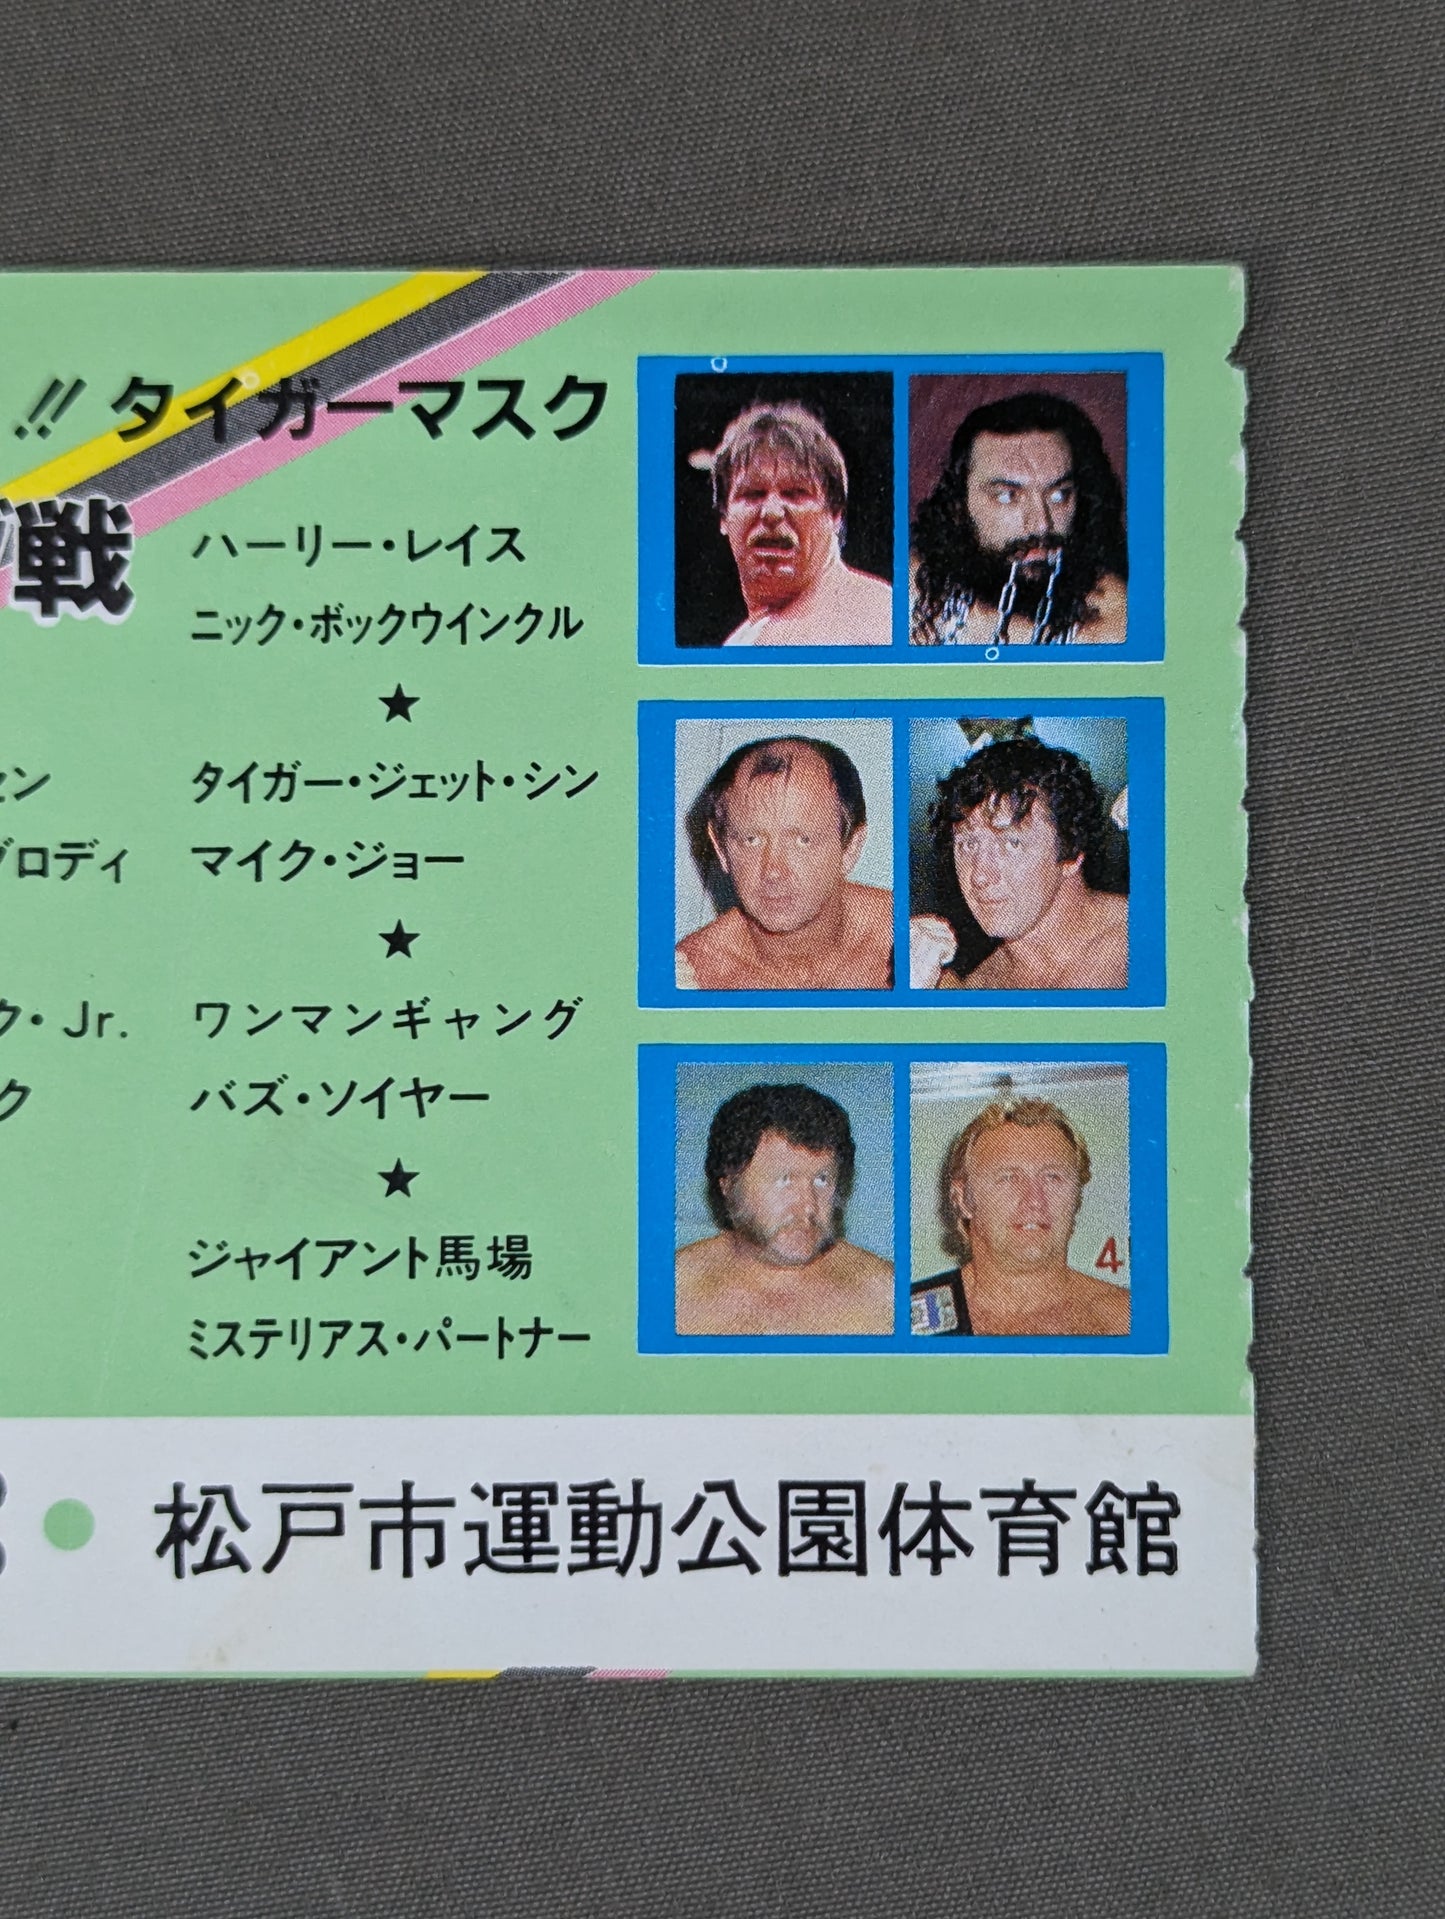 !! タイガーマスク
戦
ハーリー・レイス
ニック・ボックウインクル
★
セン タイガー・ジェット・シン
ブロディ マイク・ジョー
★
ク・Jr. ワンマンギャング
ク バズ・ソイヤー
★
ジャイアント馬場
ミステリアス・パートナー
4
● 松戸市運動公園体育館